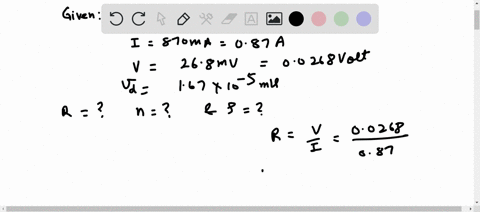 Given:
I = 870mA = 0.87 A
V = 26.8 mV = 0.0268 Volt
Vd = 1.67 × 10^-5 m/s
R = ? n = ? & ρ = ?
R = V/I = 0.0268/0.87